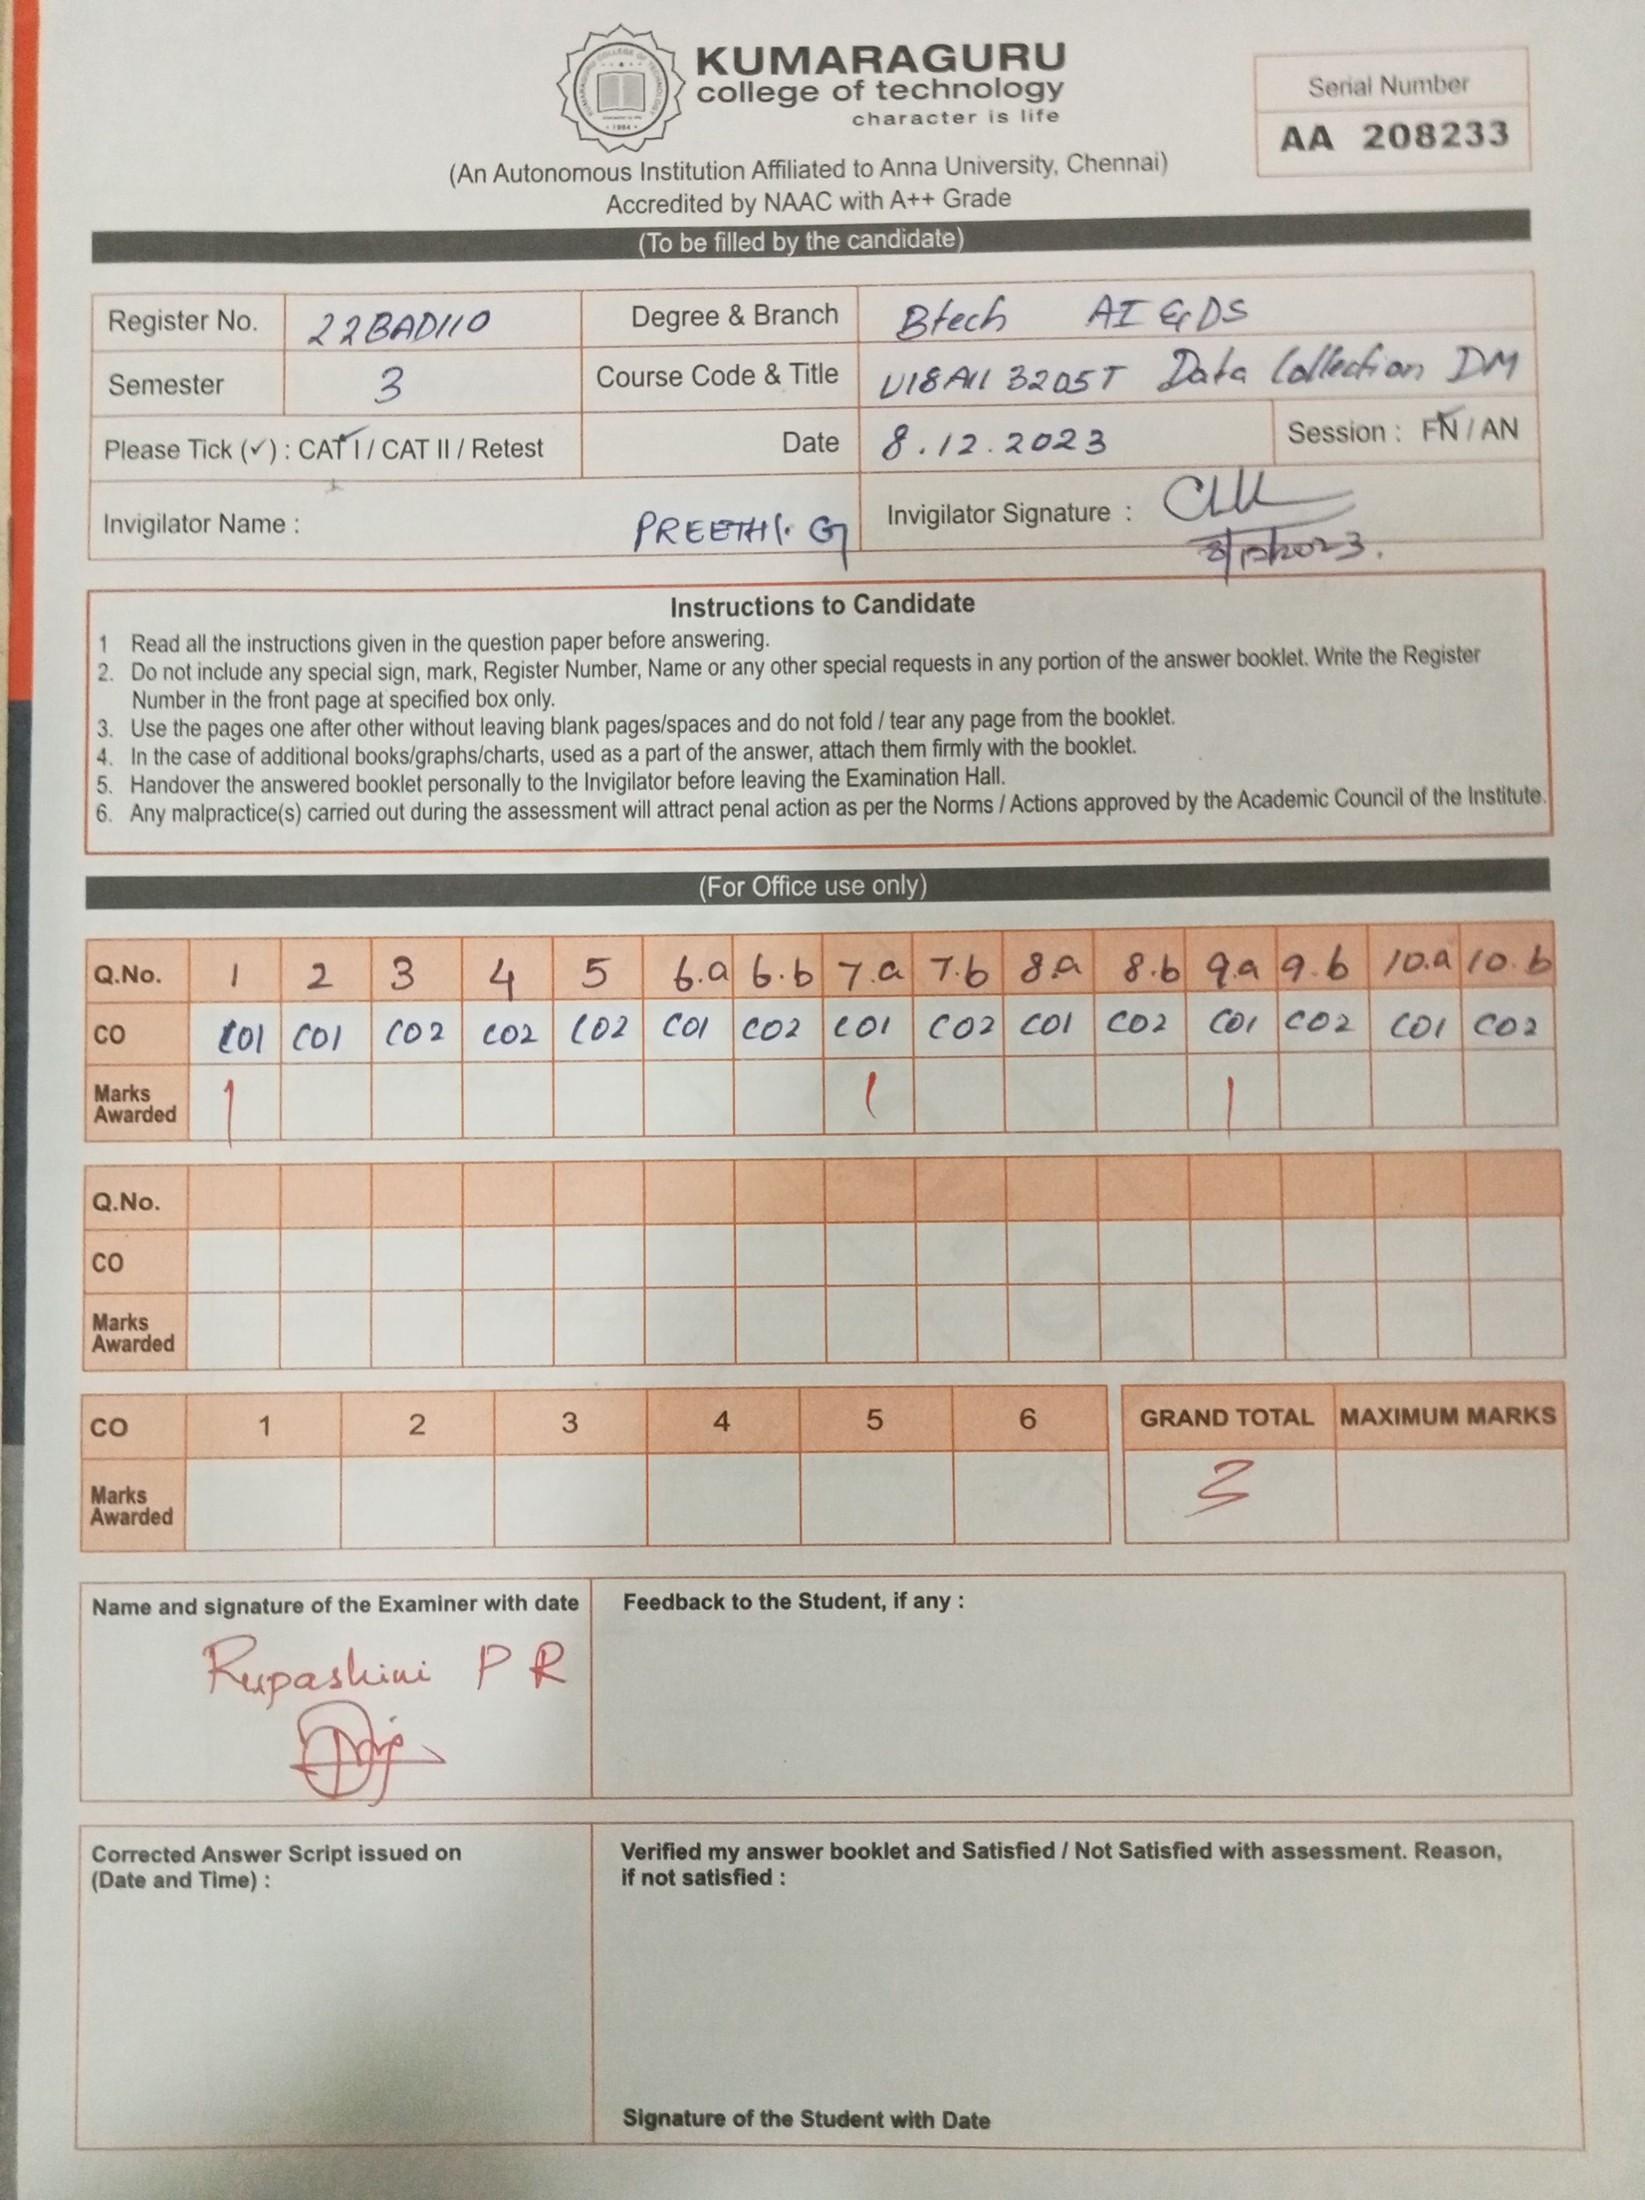 KUMARAGURU
college of technology
character is life
Serial Number
AA 208233
(An Autonomous Institution Affiliated to Anna University, Chennai)
Accredited by NAAC with A++ Grade
(To be filled by the candidate)
Register No. 22BAD110 Degree & Branch Btech AI & DS
Semester 3 Course Code & Title U18AII3205T Data Collection DM
Please Tick (✓) : CAT I / CAT II / Retest Date 8.12.2023 Session : FN / AN
Invigilator Name : PREETHI. G Invigilator Signature :
Instructions to Candidate
1 Read all the instructions given in the question paper before answering.
2. Do not include any special sign, mark, Register Number, Name or any other special requests in any portion of the answer booklet. Write the Register
Number in the front page at specified box only.
3. Use the pages one after other without leaving blank pages/spaces and do not fold / tear any page from the booklet.
4. In the case of additional books/graphs/charts, used as a part of the answer, attach them firmly with the booklet.
5. Handover the answered booklet personally to the Invigilator before leaving the Examination Hall.
6. Any malpractice(s) carried out during the assessment will attract penal action as per the Norms / Actions approved by the Academic Council of the Institute.
(For Office use only)
Q.No. 1 2 3 4 5 6.a 6.b 7.a 7.b 8.a 8.b 9.a 9.b 10.a 10.b
CO CO1 CO1 CO2 CO2 CO2 CO1 CO2 CO1 CO2 CO1 CO2 CO1 CO2 CO1 CO2
Marks
Awarded 1 1 1
Q.No.
CO
Marks
Awarded
CO 1 2 3 4 5 6 GRAND TOTAL MAXIMUM MARKS
Marks
Awarded 3
Name and signature of the Examiner with date Feedback to the Student, if any :
Rupashini P R
Corrected Answer Script issued on
(Date and Time) :
Verified my answer booklet and Satisfied / Not Satisfied with assessment. Reason,
if not satisfied :
Signature of the Student with Date